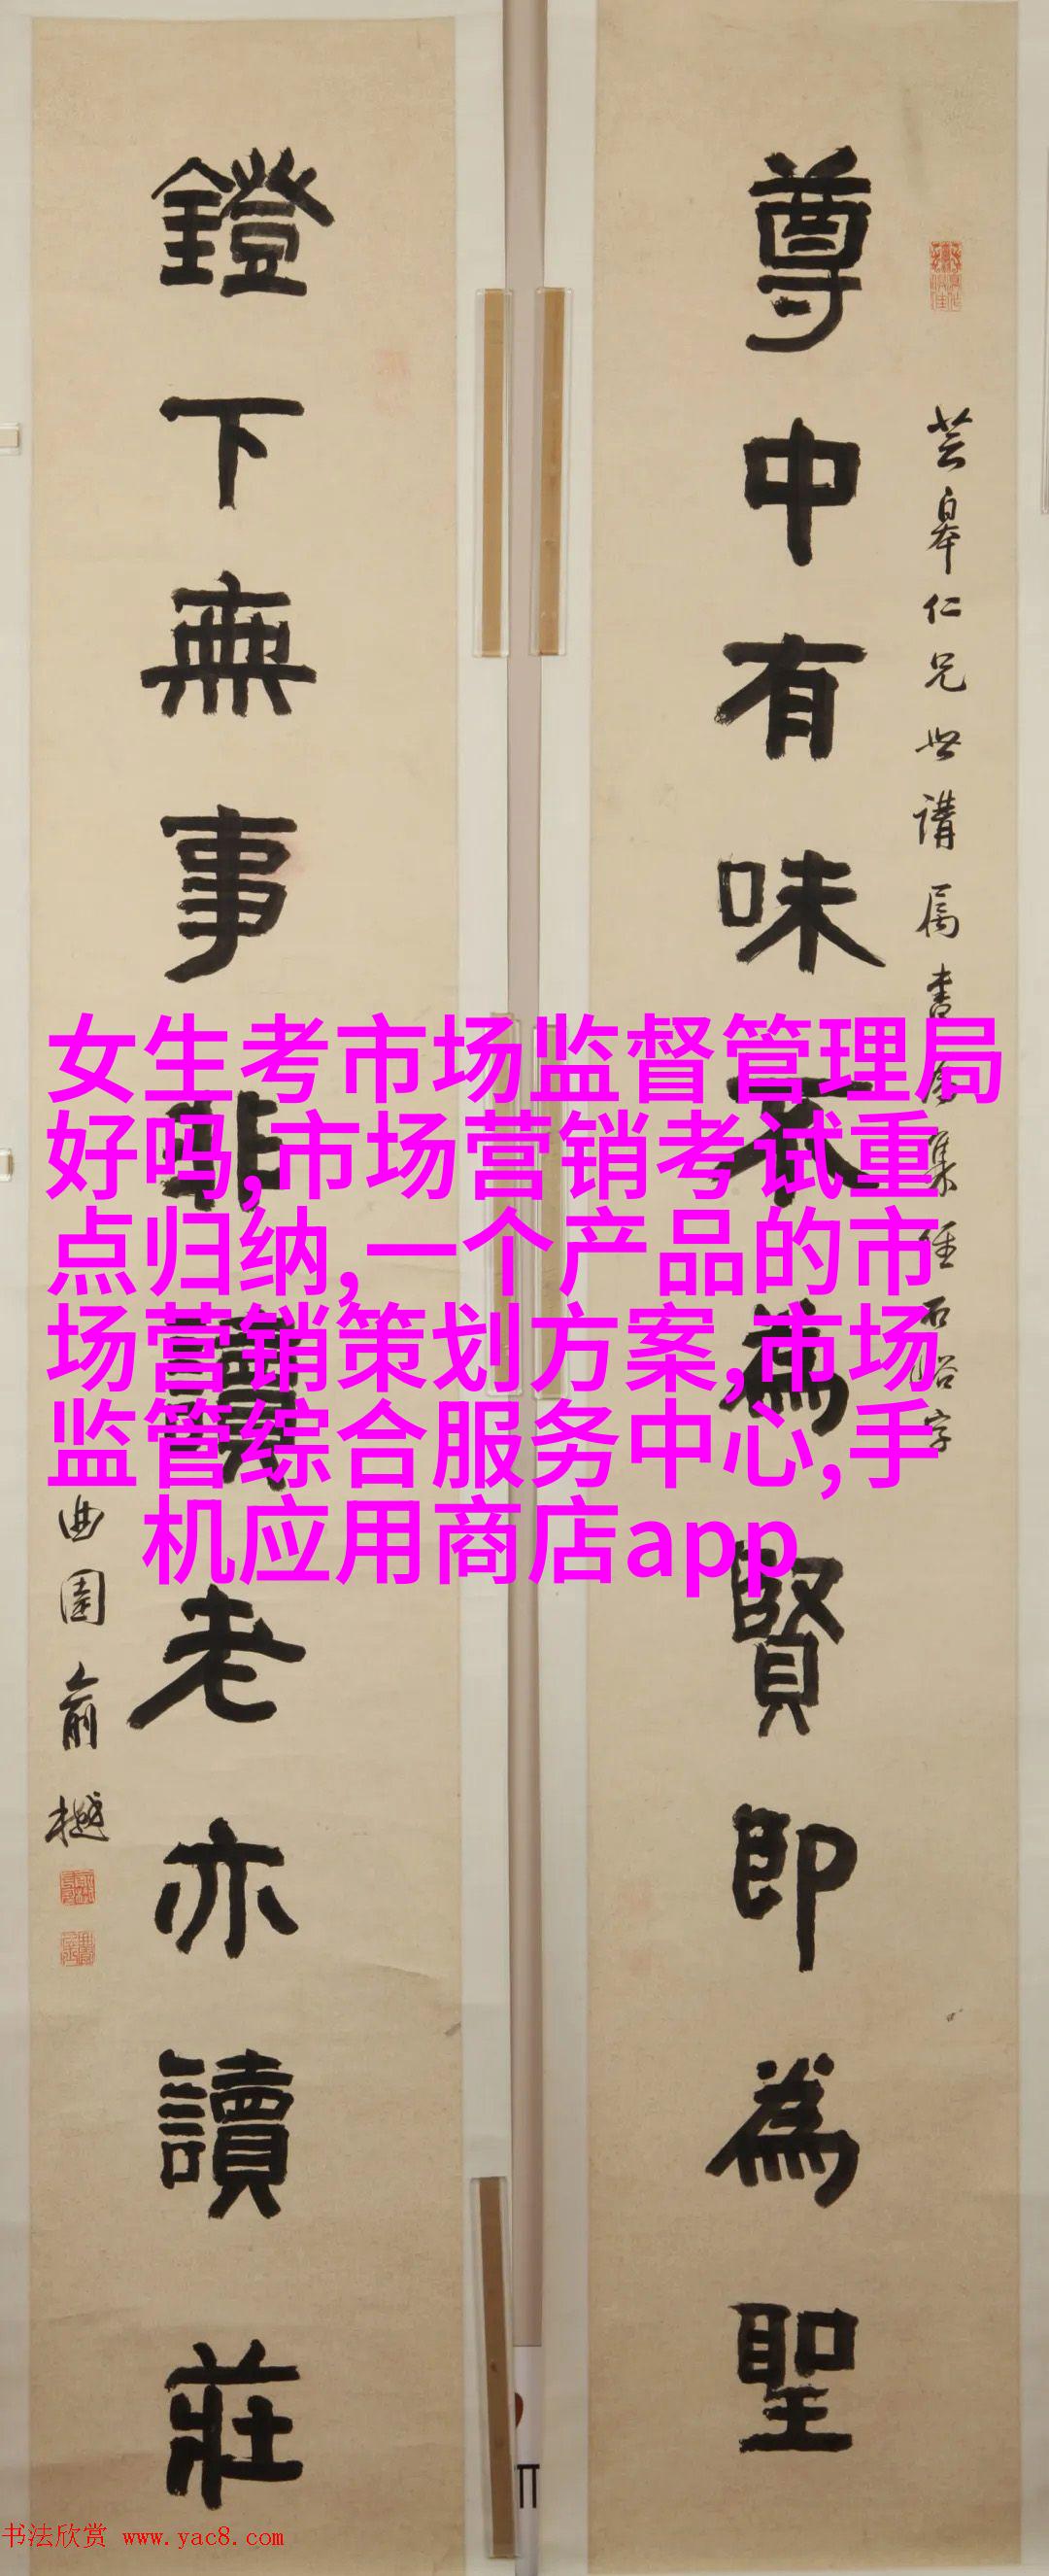 尊中有味不為賢即為聖
芸皋仁兄世講属書為集經石峪字
鐙下無事非讀老亦讀莊
曲園俞樾
女生考市场监督管理局
好吗,市场营销考试重
点归纳,一个产品的市
场营销策划方案,市场
监管综合服务中心,手
机应用商店app
书法欣赏 www.yac8.com